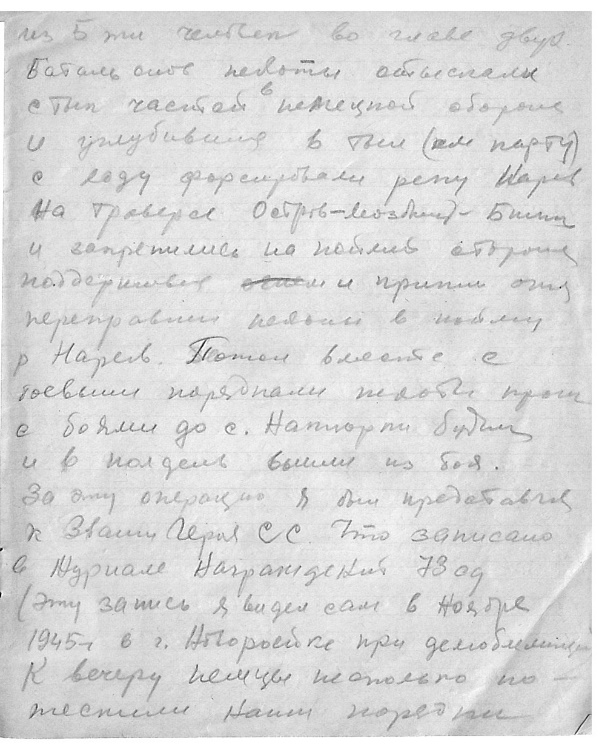 из 5 ти человек во главе двух
Батальонов пехоты отыскали
стык частей в немецкой обороне
и углубившись в тыл (см карту)
с ходу форсировали реку Нарев
На траверсе Остров-
и закрепились на той стороне
поддерживая и прикрывая
переправы пехоты в пойму
р Нарев. Потом вместе с
боевыми порядками пехоты прошли
с боями до с.
и в полдень вышли из боя.
За эту операцию я был представлен
к Званию Героя СС. Что записано
в Журнале Награждений 73 сд
(Эту запись я видел сам в Ноябре
1945г в г. Новороссийске при демобилизации
К вечеру немцы несколько по-
теснили наши порядки